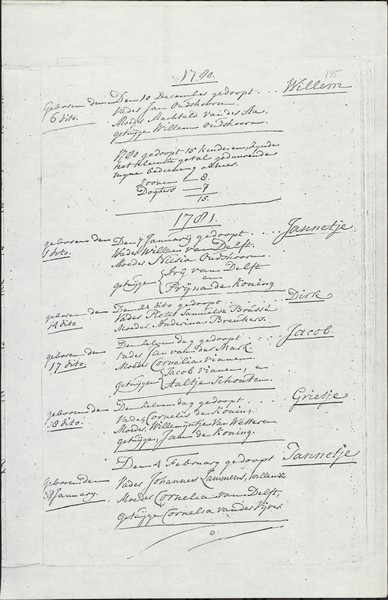 1780.
145
geboren den Den 10 December gedoopt . . . Willem
6 dito. Vader Jan Oudshoorn.
Moeder Machtelt van der Aa.
getuijge Willem Oudshoorn.
1780 gedoopt 15 kinderen, zijnde
het kleinste getal geduurende
mijne bediening alhier.
Zoonen — 8.
Dogters — 7
15.
1781.
geboren den Den 7 Januarij gedoopt . . . Jannetje
1 dito. Vader Willem van Delft.
Moeder Oudshoorn.
getuijge Arij van Delft
en
Prijna de Koning
geboren den Den 21 dito gedoopt . . . Dirk
14 dito Vader Samuelse
Moeder Andriena Breukers.
geboren den Den zelven dag gedoopt . . . Jacob
17 dito. Vader Jan van der Mark
Moeder Cornelia Vianen
getuijgen Jacob Vianen, en
Aaltje Schouten.
geboren den Den zelven dag gedoopt . . . Grietje
dito. Vader Cornelis de Koning.
Moeder Willemijntje van Wetteren
getuijge Jan de Koning.
geboren den Den 4 February gedoopt Jannetje
January. Vader Johannes Lammens, Willemsz
Moeder Cornelia van Delft,
getuijge Cornelia van der Vijver